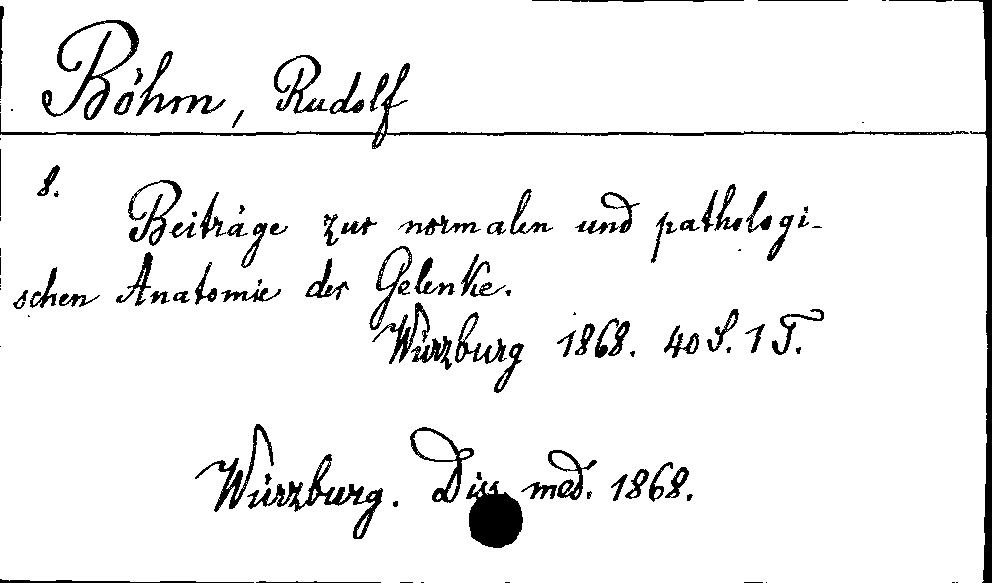 Böhm, Rudolf
8.
Beiträge zur normalen und pathologi-
schen Anatomie der Gelenke.
Würzburg 1868. 40 S. 1 T.
Würzburg. Diss. med. 1868.